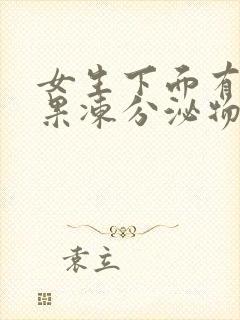 女生下面有
果冻分泌物
袁立